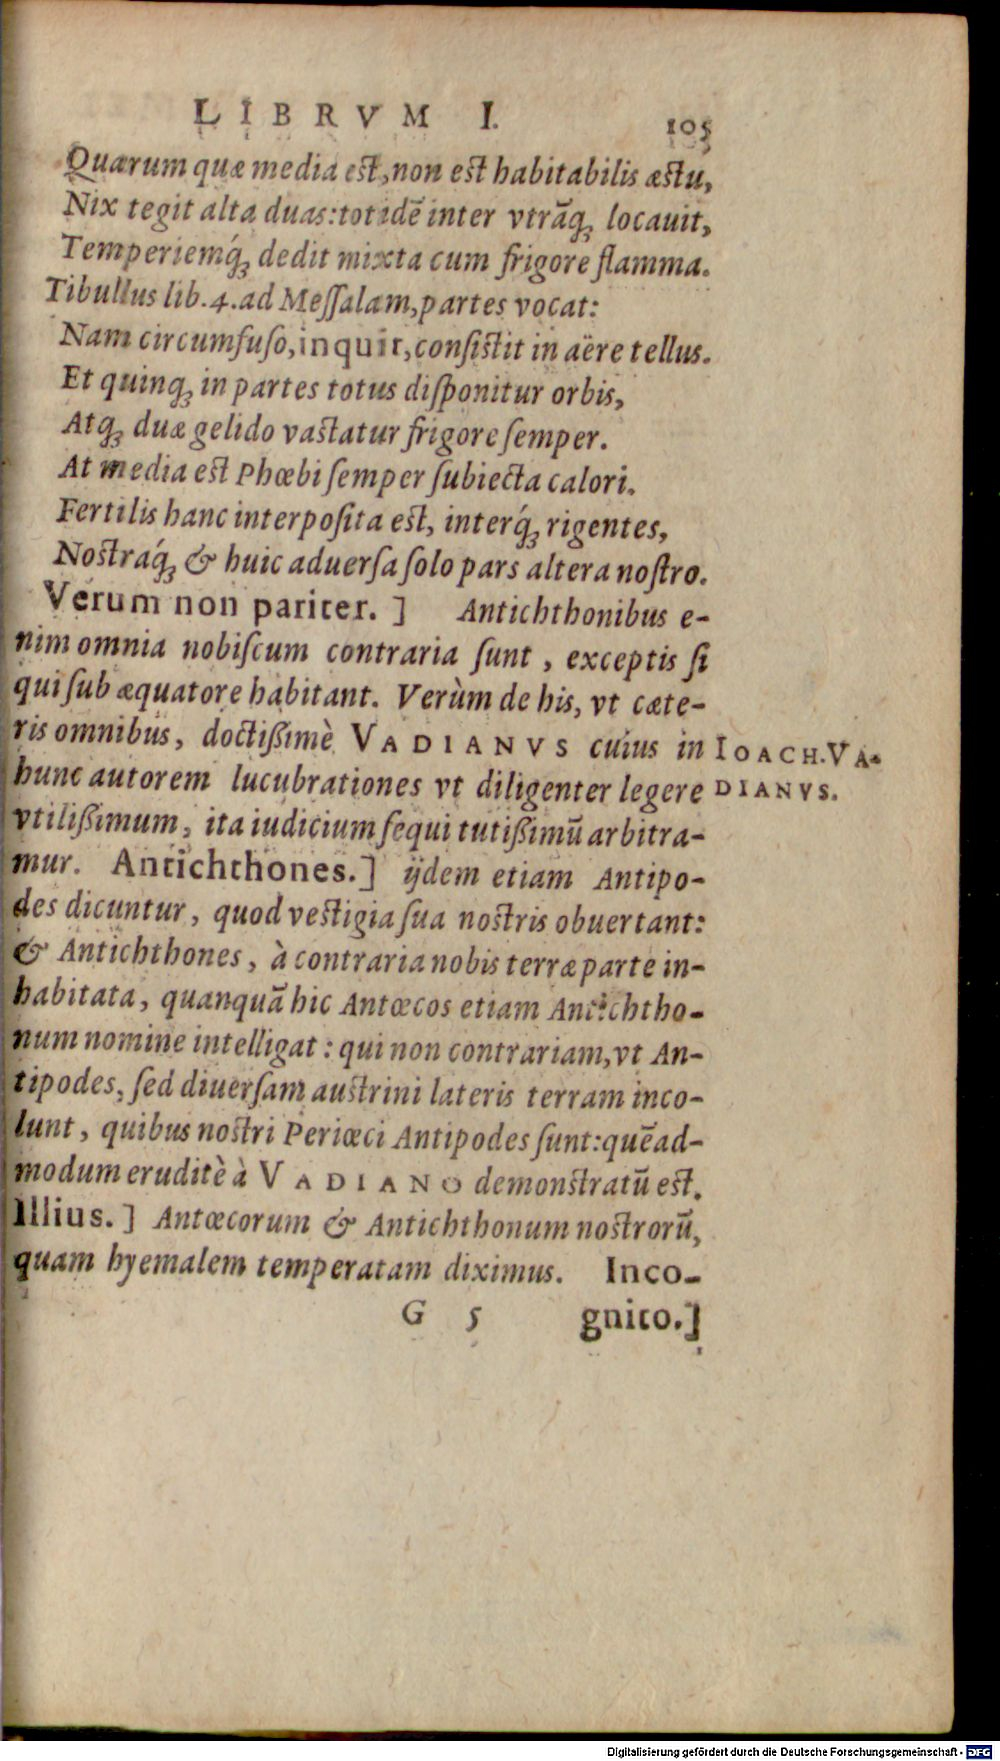 LIBRVM I. 105
Quarum quæ media est, non est habitabilis æstu,
Nix tegit alta duas: totidē inter vtrāq; locauit,
Temperiemq́; dedit mixta cum frigore flamma.
Tibullus lib. 4. ad Meſſalam, partes vocat:
Nam circumfuſo, inquit, conſistit in aëre tellus.
Et quinq; in partes totus diſponitur orbis,
Atq; duæ gelido vastatur frigore ſemper.
At media est Phœbi ſemper ſubiecta calori.
Fertilis hanc interpoſita est, interq́; rigentes,
Nostraq́; & huic aduerſa ſolo pars altera noſtro.
Verum non pariter. ] Antichthonibus e-
nim omnia nobiſcum contraria ſunt, exceptis ſi
qui ſub æquatore habitant. Verùm de his, vt cæte-
ris omnibus, doctißimè VADIANVS cuius in
IOACH. VA-
DIANVS.
hunc autorem lucubrationes vt diligenter legere
vtilißimum, ita iudicium ſequi tutißimū arbitra-
mur. Antichthones. ] ijdem etiam Antipo-
des dicuntur, quod vestigia ſua nostris obuertant:
& Antichthones, à contraria nobis terræ parte in-
habitata, quanquā hic Antœcos etiam Antichtho-
num nomine intelligat: qui non contrariam, vt An-
tipodes, ſed diuerſam austrini lateris terram inco-
lunt, quibus nostri Periœci Antipodes ſunt: quēad-
modum eruditè à VADIANO demonstratū est.
Illius. ] Antœcorum & Antichthonum nostrorū,
quam hyemalem temperatam diximus. Inco-
G 5 gnito. ]
Digitalisierung gefördert durch die Deutsche Forschungsgemeinschaft - DFG